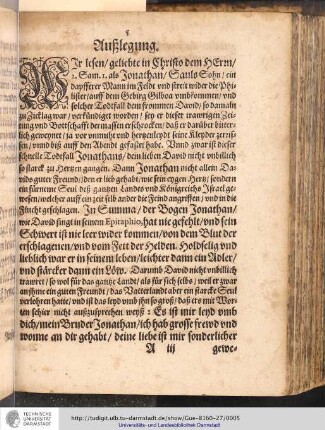 Außlegung.
WIr lesen/ geliebte in Christo dem HErrn/
1. Sam. 1. als Jonathan/ Sauls Sohn/ ein
dapfferer Mann im Feld vnd streit wider die Phi-
lister/ auff dem Gebirg Gilboa vmbkommen/ vnd
solcher Todtfall dem frommen David/ so damaln
zu Ziklag war/ verkündiget worden/ sey er dieser trawrigen Zei-
tung vnd Bottschafft dermassen erschrocken/ daß er darüber bitter-
lich geweynet/ ja vor vnmuht vnd hertzenleyd seine Kleyder zerris-
sen/ vnnd biß auff den Abend gefastet habe. Vnnd zwar ist dieser
schnelle Todtsfall Jonathans/ dem lieben David nicht vnbillich
so starck zu Hertzen gangen. Dann Jonathan nicht allein Da-
vids guter Freund/ den er lieb gehabt/ wie sein eygen Hertz/ sondern
ein fürneme Seul deß gantzen Landes vnd Königreichs Israel ge-
wesen/ welcher auff ein zeit selb ander die Feind angriffen/ vnd in die
Flucht geschlagen. In Summa/ der Bogen Jonathan/
wie David singt in seinem Epicephio, hat nie gefehlt/ vnd sein
Schwert ist nie leer wider kommen/ von dem Blut der
erschlagenen/ vnd vom Fett der Helden. Holdselig vnd
lieblich war er in seinem leben/ leichter dann ein Adler/
vnd stärcker dann ein Löw. Darumb David nicht vnbillich
trawret/ so wol für das gantze Land/ als für sich selbs/ weil er zwar
an ihme ein guten Freundt/ das Vatterlandt aber ein starcke Seul
verlohren hatte/ vnd ist das leyd vmb ihn so groß/ daß ers mit Wor-
ten schier nicht außzusprechen weyß: Es ist mir leyd vmb
dich/ mein Bruder Jonathan/ ich hab grosse frewd vnd
wonne an dir gehabt/ deine liebe ist mir sonderlicher
A iij gewe-
TECHNISCHE
UNIVERSITÄT
DARMSTADT
http://tudigit.ulb.tu-darmstadt.de/show/Gue-8160-27/0005
Universitäts- und Landesbibliothek Darmstadt